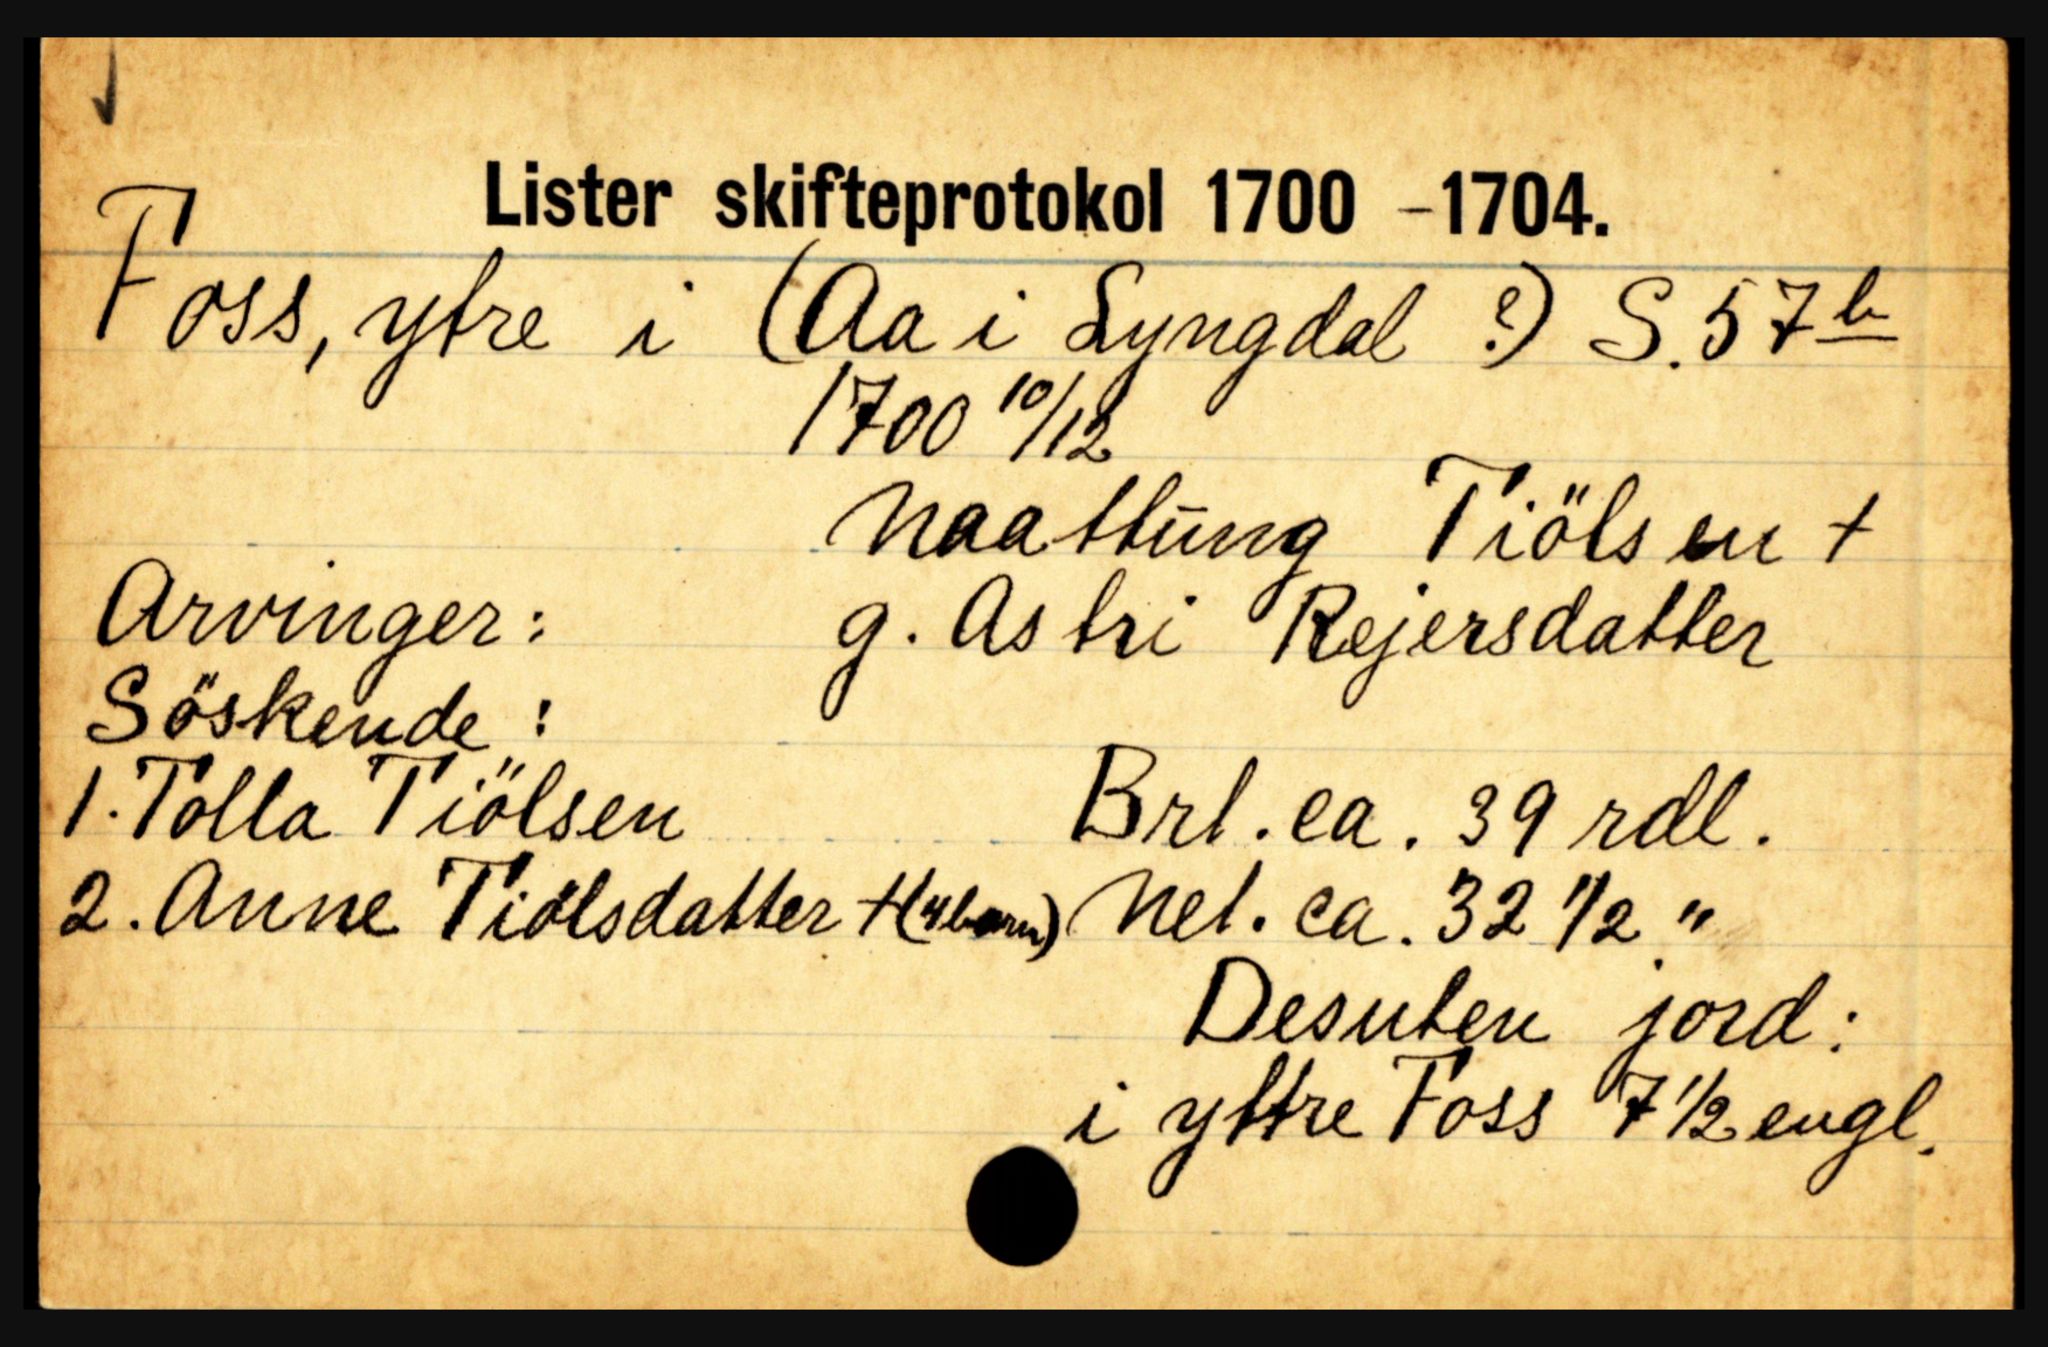 Lister skifteprotokol 1700 - 1704.
Foss, ytre i (Aa i Lyngdal ?) S. 57b
1700 10/12
Naattung Tiölsen +
Arvinger: g. Astri Rejersdatter
Söskende:
1. Tolla Tiölsen Brt. ca. 39 rdl.
2. Anne Tiölsdatter + (4 barn) Net. ca. 32 1/2 "
Desuten jord:
i yttre Foss 7 1/2 engl.